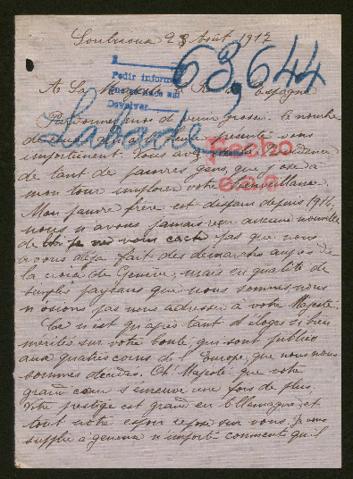 Soubroux 23 Août 1917
63,644
Pedir inform
Devolver
A Sa Majesté Espagne
Labade
Pardonnez moi de venir grossir le nombre
présente vous
importunent. Vous avez
de tant de pauvres gens, que j'ose à
mon tour implorer votre bienveillance.
Hecho
Mon pauvre frère est disparu depuis 1914,
nous n'avons jamais reçu aucune nouvelle
de lui je ne vous cache pas que nous
avons déja fait des démarches auprès de
la croix de Genève, mais en qualité de
simples paysans que nous sommes nous
n'osions pas nous adresser à votre Majesté.
Ce n'est qu'après tant d'éloges si bien
mérités sur votre bonté, qui sont publiés
aux quatres coins de l'Europe, que nous nous
sommes décidés. Oh! Majesté que votre
grand cœur s'émeuve une fois de plus.
Votre prestige est grand en Allemagne, et
tout notre espoir repose sur vous. Je vous
supplie à genoux n'importe comment qu'il